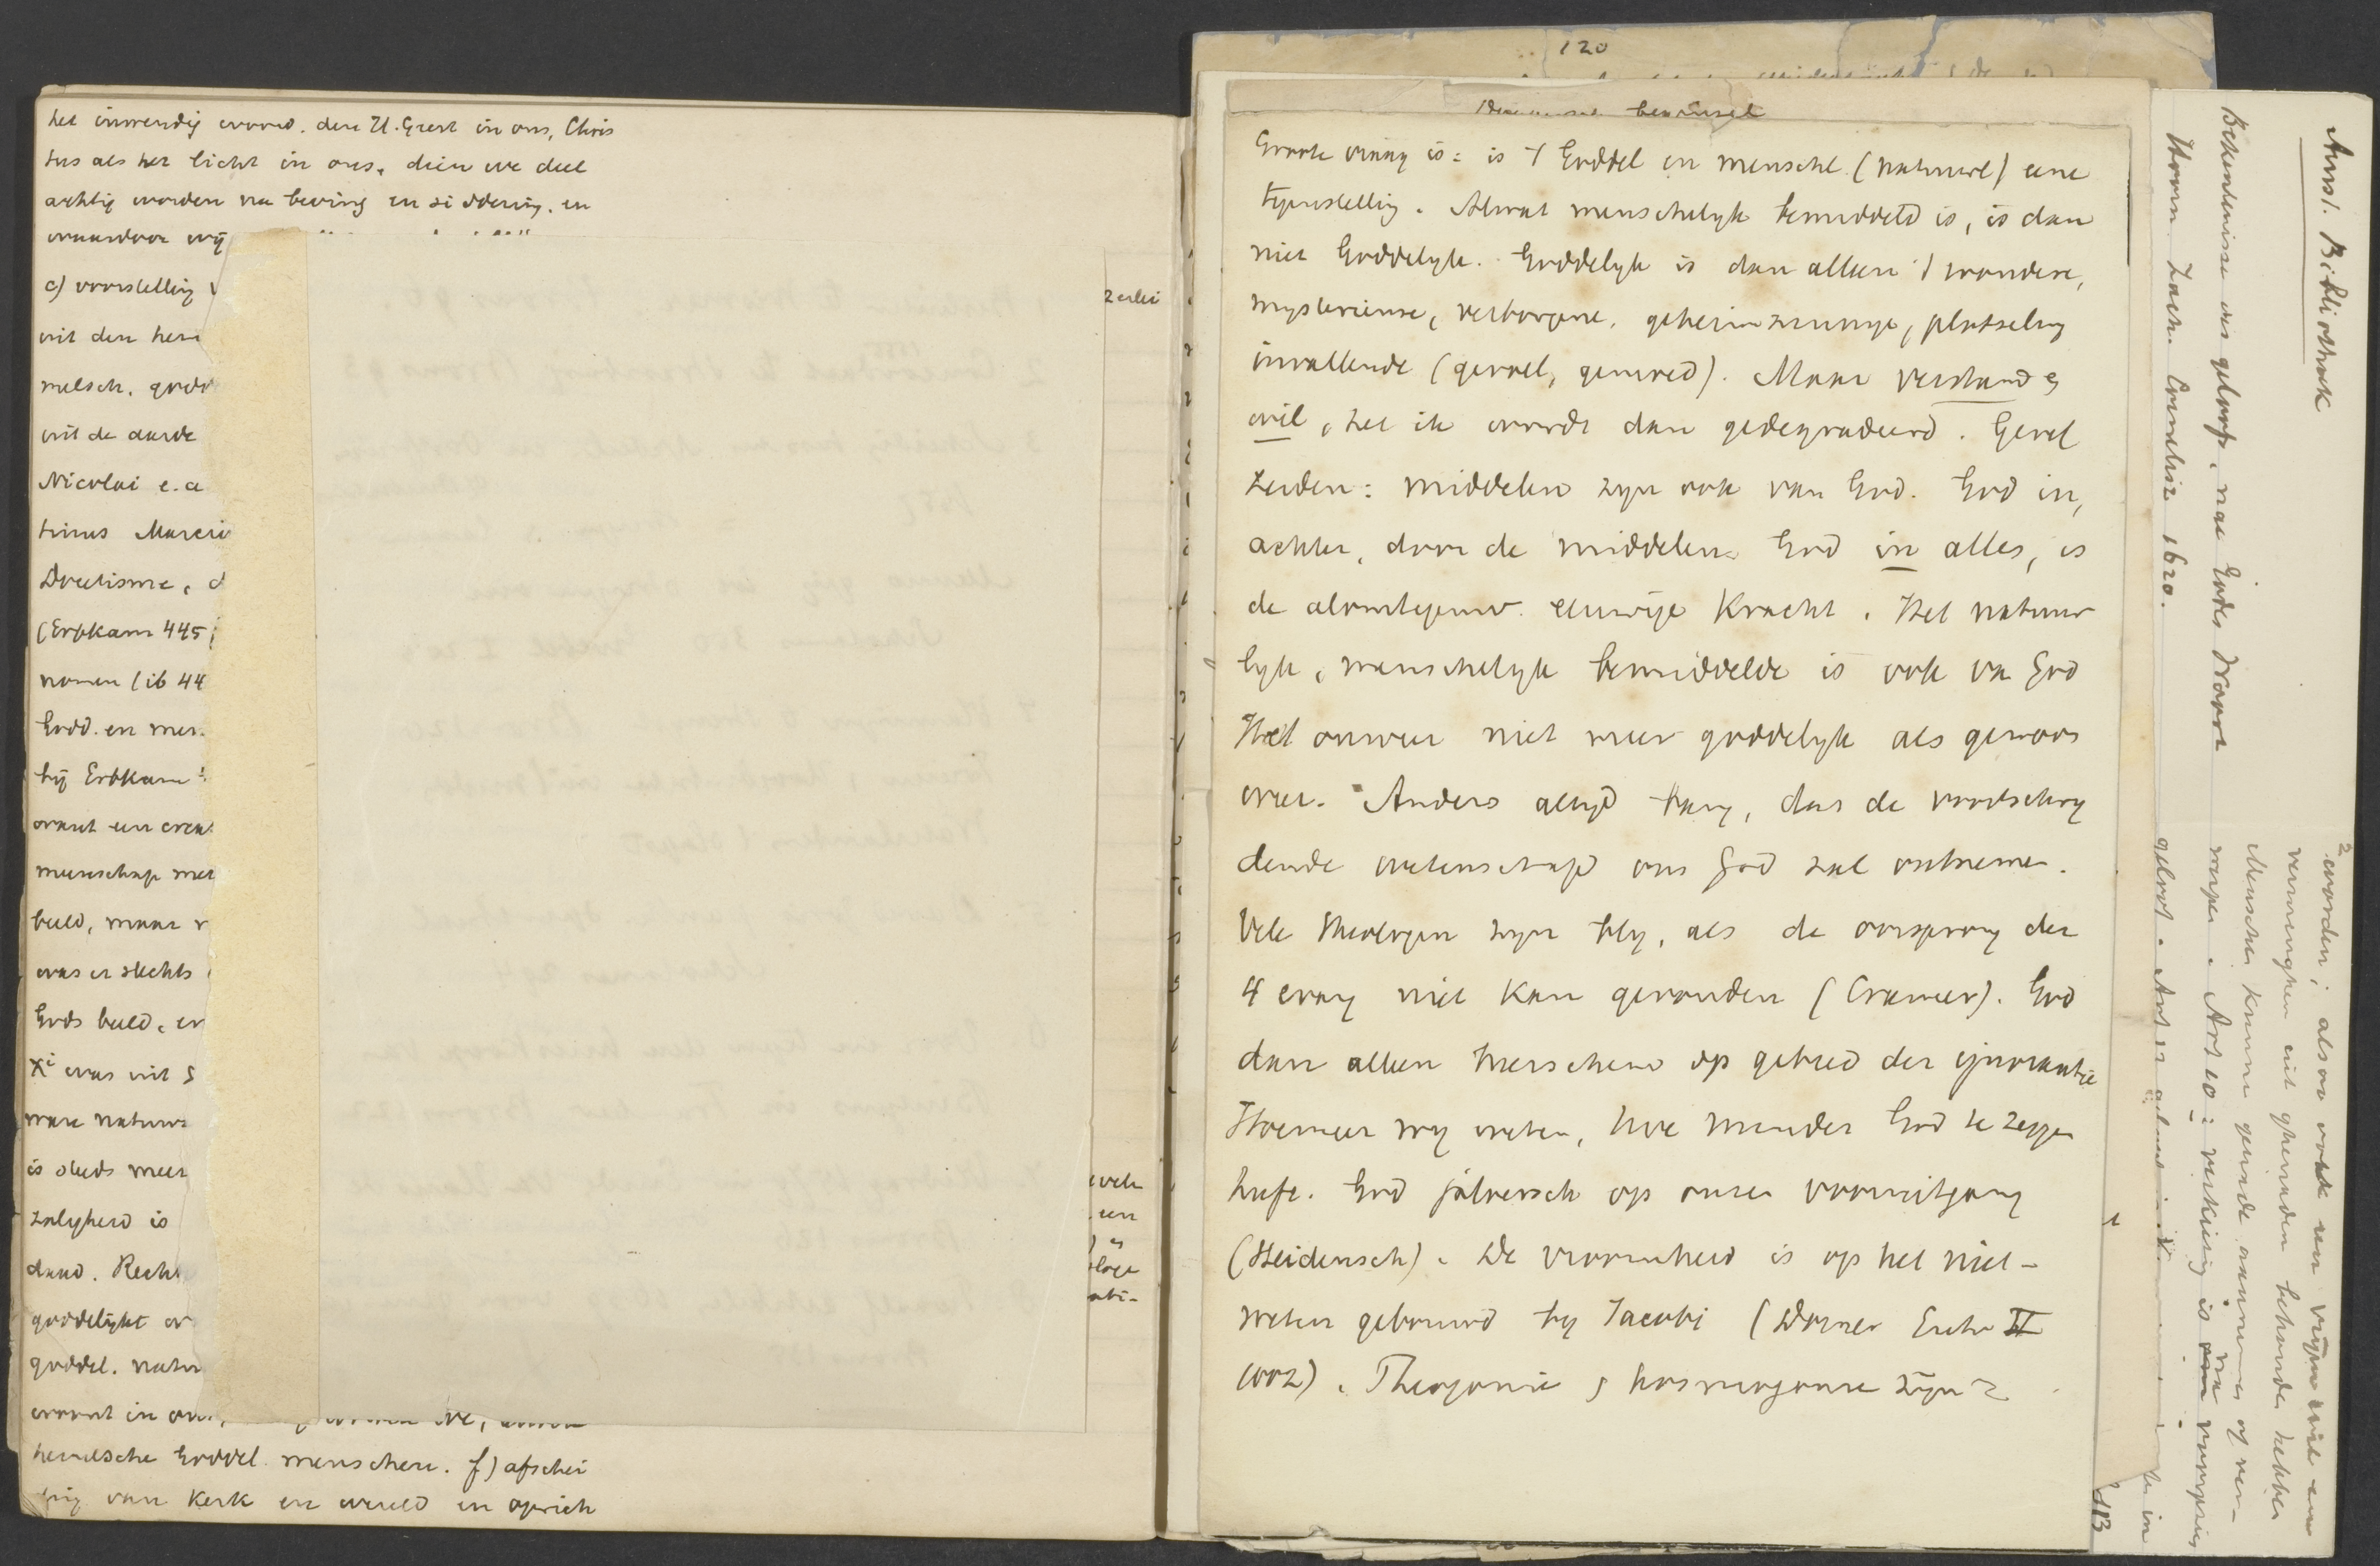 het inwendig woord. den H. Geest in ons, Chris
tus als het licht in ons, dien we deel
achtig worden na beving en siddering. en
waardoor wij
c) voorstelling
uit den hem
melsch. godd
uit de aarde
Nicolai e.a
trinus Marci
Docetisme, d
(Erbkam 445;
nomen (ib 44
Godd. en men
bij Erbkam
want een crea
meenschap met
beeld, maar v
was er slechts
Gods beeld, en
Xi was uit
ware natuur
is steeds meer
zaligheid is
daad. Recht
goddelijkt
goddel. natu
woont in on
hemelsche Goddel. menschen. f) afschei
ing van Kerk en wereld en oprich
2 erlei
een
120
bewinsel
Groote vraag is: is 't Goddel en menschl. (natuurl) eene
tegenstelling. Alwat menschelijk bemiddeld is, is dan
niet Goddelijk. Goddelijk is dan alleen 't wondere,
mysterieuse, verborgene, geheimzinnige, plotseling
invallende (gevoel, gemoed). Maar verstand &
wil, het ik wordt dan gedegradeerd. Geref
zeiden: middelen zijn ook van God. God in,
achter, door de middelen God in alles, is
de alomtegenw. eeuwige Kracht. Het natuur
lijk, menschelijk bemiddelde is ook van God
Het onweer niet meer goddelijk als gewoon
weer. Anders altijd bang, dat de voortschrij
dende wetenschap ons God zal ontnemen.
Vele theologen zijn blij, als de oorsprong der
4 evang niet kan gevonden (Cramer). God
dan alleen heerschend op gebied der ignorantie
Hoemeer wij weten, hoe minder God te zeggen
heeft. God jaloersch op onzen vooruitgang
(Heidensch). De vroomheid is op het niet-
weten gebouwd bij Jacobi (Dorner Entw II
1002). Theogonie & kosmogonie zijn
Amst. Bibliotheek
Bekentenisse des geloofs, nae Godes Woort
Hoorn Zach. Cornelisz 1620.
2 worden; alsoo ook een vrijen wil om
vermenghen uit ghenaden behoude hebben
Menschen kunne genade aannemen of ver-
werpen. Art 10: verkiezing is na voorgezien
geloof. Art
te in
113